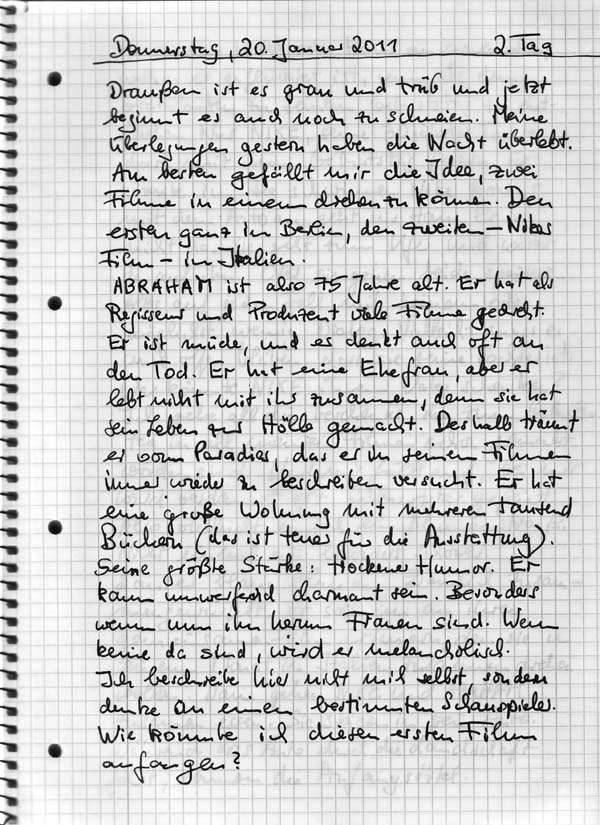 Donnerstag, 20. Januar 2011 2. Tag
Draußen ist es grau und trüb und jetzt
beginnt es auch noch zu schneien. Meine
Überlegungen gestern haben die Nacht überlebt.
Am besten gefällt mir die Idee, zwei
Filme in einem drehen zu können. Den
ersten ganz in Berlin, den zweiten – Nikos
Film – in Italien.
ABRAHAM ist also 75 Jahre alt. Er hat als
Regisseur und Produzent viele Filme gedreht.
Er ist müde, und es denkt auch oft an
den Tod. Er hat eine Ehefrau, aber er
lebt nicht mit ihr zusammen, denn sie hat
sein Leben zur Hölle gemacht. Deshalb träumt
er vom Paradies, das er in seinen Filmen
immer wieder zu beschreiben versucht. Er hat
eine große Wohnung mit mehreren Tausend
Büchern (das ist teuer für die Ausstattung).
Seine größte Stärke: trockener Humor. Er
kann umwerfend charmant sein. Besonders
wenn um ihn herum Frauen sind. Wenn
keine da sind, wird er melancholisch.
Ich beschreibe hier nicht mich selbst, sondern
denke an einen bestimmten Schauspieler.
Wie könnte ich diesen ersten Film
anfangen?